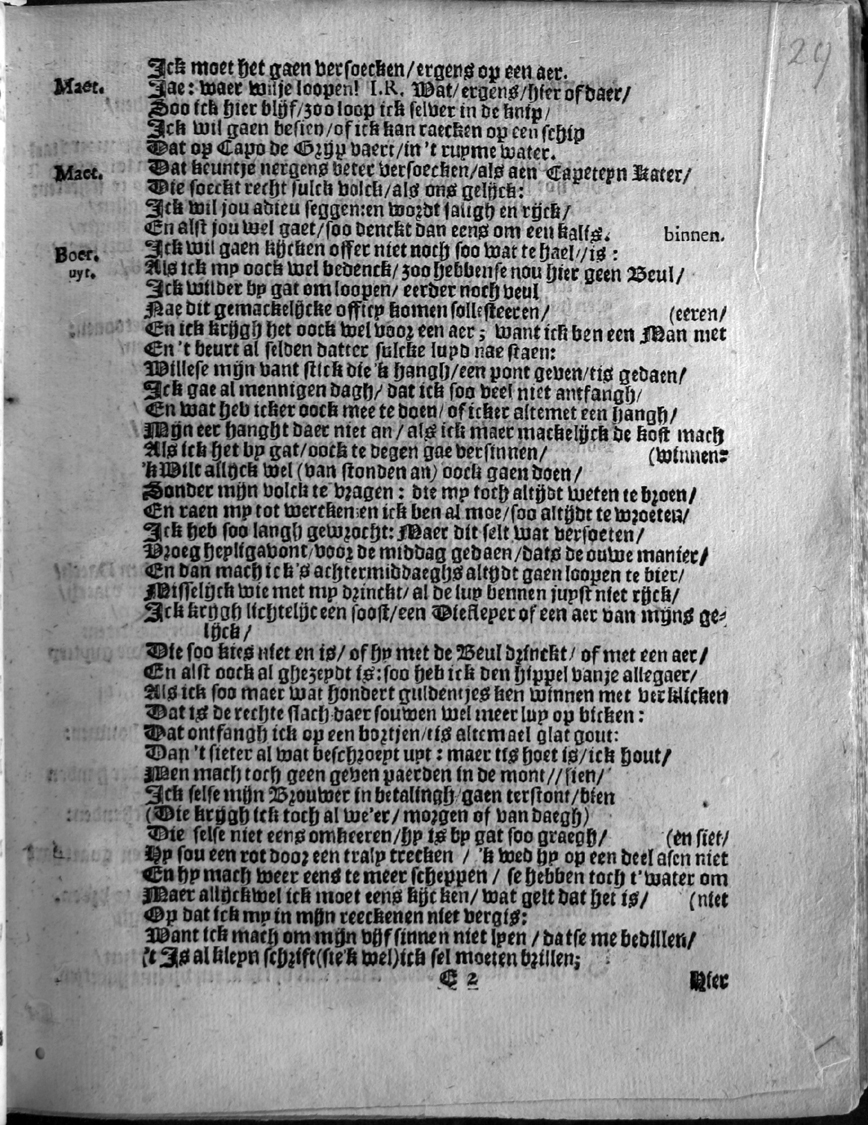 29
Ick moet het gaen versoecken/ergens op een aer.
Maet. Jae: waer wilje loopen! I.R. Wat/ergens/hier of daer/
Soo ick hier blijf/zoo loop ick selver in de knip/
Ick wil gaen besien/of ick kan raecken op een schip
Dat op Capo de Grijp vaert/in 't ruyme water.
Maet. Dat keuntje nergens beter versoecken/als aen Capeteyn Kater/
Die soeckt recht sulck volck/als ons gelijck:
Ick wil jou adieu seggen:en wordt saligh en rijck/
En alst jou wel gaet/soo denckt dan eens om een kalis. binnen.
Boer. uyt. Ick wil gaen kijcken offer niet noch soo wat te hael//is:
Als ick my oock wel bedenck/zoo hebbense nou hier geen Beul/
Ick wilder by gat om loopen/eerder noch veul
Nae dit gemackelijcke officy komen sollesteeren/ (eeren/
En ick krijgh het oock wel voor een aer; want ick ben een Man met
En 't beurt al selden datter sulcke luyd nae staen:
Willese mijn vant stick die 'k hangh/een pont geven/tis gedaen/
Ick gae al mennigen dagh/dat ick soo veel niet antfangh/
En wat heb icker oock mee te doen/of icker altemet een hangh/
Mijn eer hanght daer niet an/als ick maer mackelijck de kost mach
Als ick het by gat/oock te degen gae versinnen/ (winnen:
'k Wilt allijck wel (van stonden an) oock gaen doen/
Sonder mijn volck te vragen: die my toch altijdt weten te broen/
En raen my tot wercken:en ick ben al moe/soo altijdt te wroeten/
Ick heb soo langh gewrocht: Maer dit selt wat versoeten/
Vroeg heyligavont/voor de middag gedaen/dats de ouwe manier/
En dan mach ick 's achtermiddaeghs altijdt gaen loopen te bier/
Misselijck wie met my drinckt/al de luy bennen juyst niet rijck/
Ick krijgh lichtelijc een soost/een Diefleyer of een aer van mijns ge-
lijck/
Die soo kies niet en is/of hy met de Beul drinckt/of met een aer/
En alst oock al ghezeydt is:soo heb ick den hippel vanje allegaer/
Als ick soo maer wat hondert guldentjes ken winnen met verklicken
Dat is de rechte slach daer souwen wel meer luy op bicken:
Dat ontfangh ick op een bortjen/tis altemael glat gout:
Dan 't sieter al wat beschroeyt uyt: maer tis hoet is/ick hout/
Men mach toch geen geven paerden in de mont//sien/
Ick selse mijn Brouwer in betalingh gaen terstont/bien
(Die krijgh ick toch al we'er/morgen of van daegh)
Die selse niet eens omkeeren/hy is by gat soo graegh/ (en siet/
Hy sou een rot door een traly trecken / 'k wed hy op een deel asen niet
En hy mach weer eens te meer scheppen / se hebben toch t'water om
Maer allijckwel ick moet eens kijcken/wat gelt dat het is/ (niet
Op dat ick my in mijn reeckenen niet vergis:
Want ick mach om mijn vijf sinnen niet lyen / datse me bedillen/
't Is al kleyn schrift(sie 'k wel)ick sel moeten brillen;
E 2 Hier